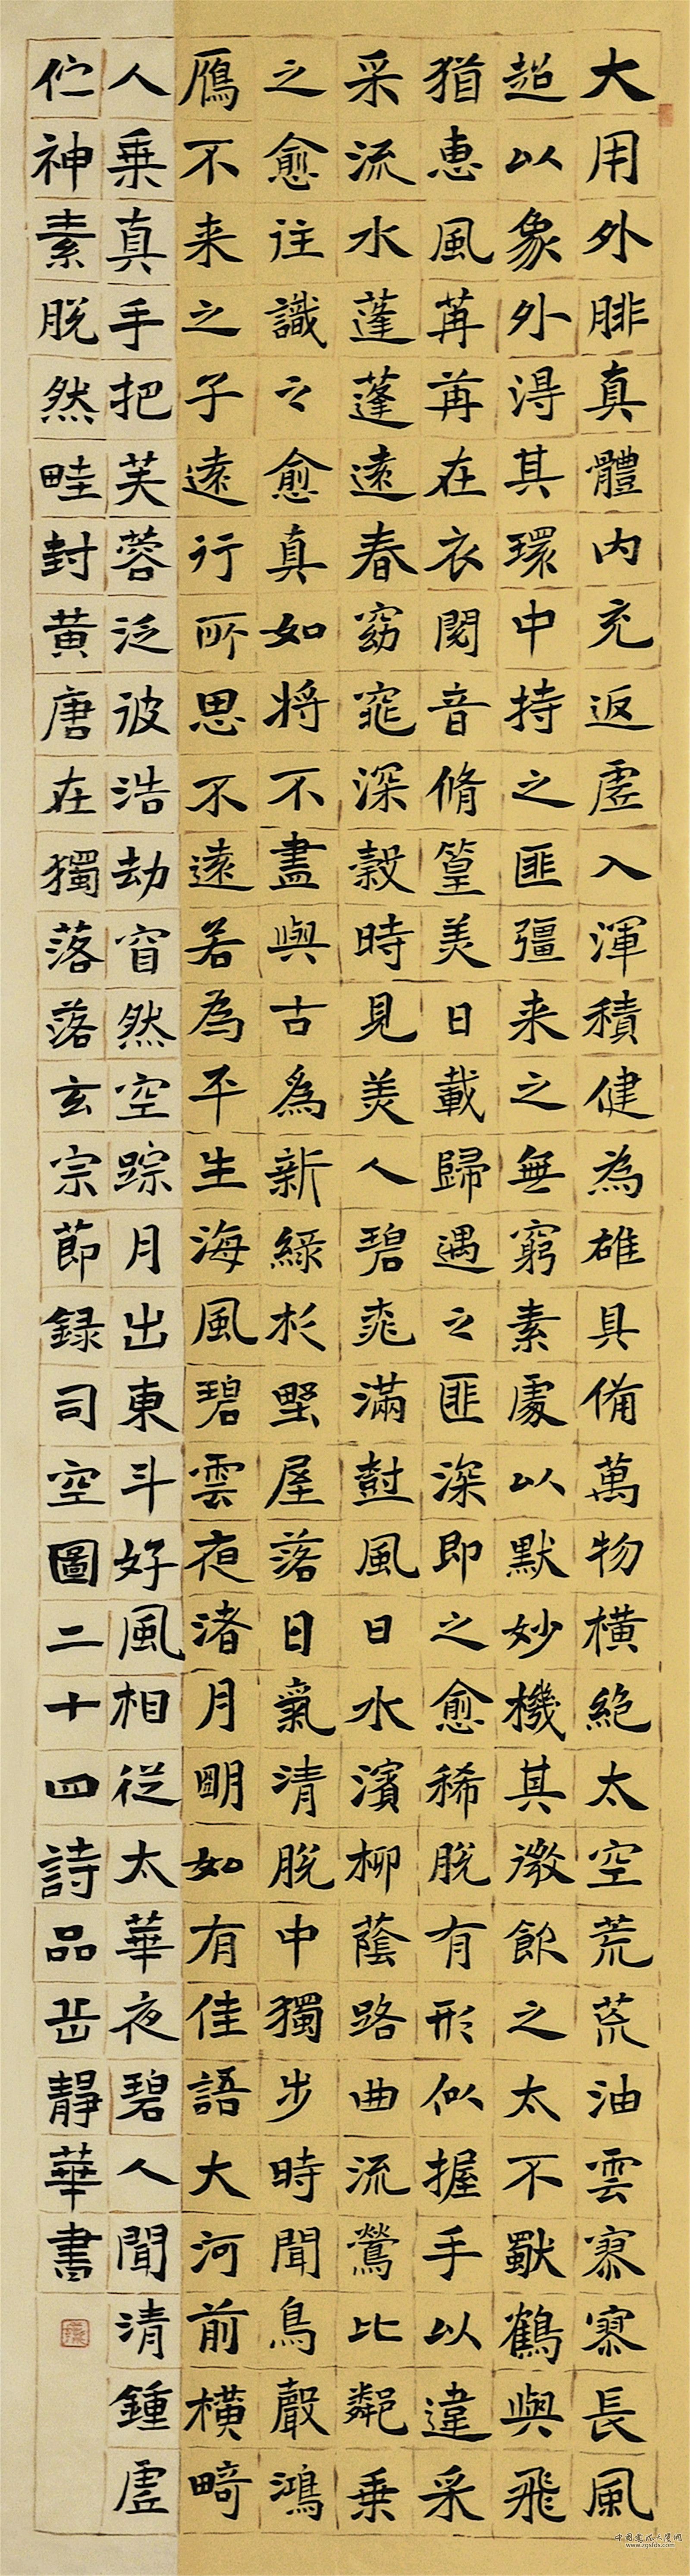 大用外腓真體內充返虛入渾積健為雄具備萬物橫絕太空荒荒油雲寥寥長風
超以象外得其環中持之匪彊来之無窮素處以默妙機其微飲之太鶴與飛
猶惠風苒苒在衣閱音脩篁美日載歸遇之匪深即之愈稀脫有形似握手以違采
采流水蓬蓬遠春窈窕深穀時見美人碧桃滿樹風日水濱柳蔭路曲流鶯比鄰乘
之愈往識之愈真如將不盡與古為新綠杉野屋落日氣清脫中獨步時聞鳥聲鴻
鴈不来之子遠行所思不遠若為平生海風碧雲夜渚月明如有佳語大河前橫畸
人乘真手把芙蓉泛彼浩劫窅然空踪月出東斗好風相從太華夜碧人聞清鍾虛
佇神素脫然畦封黃唐在獨落落玄宗節録司空圖二十四詩品岳靜華書
www.zgsfds.com